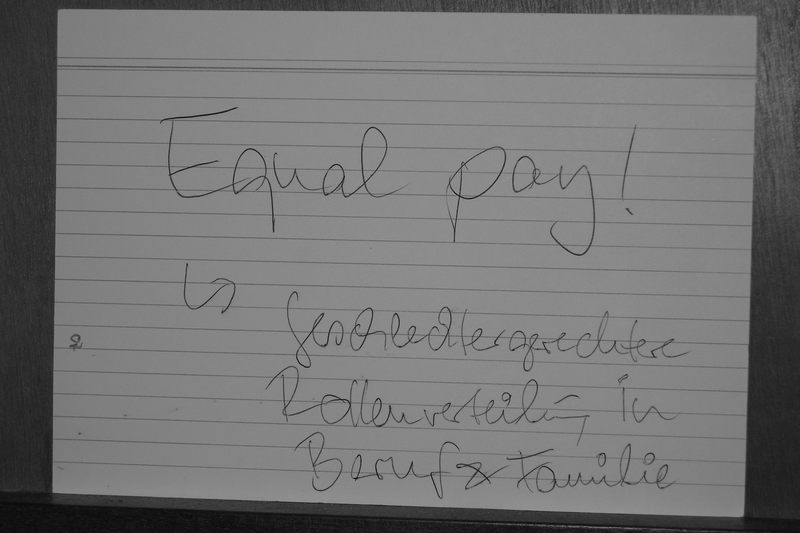 Equal pay!
↳ Geschlechtergerechtere
Rollenverteilung in
Beruf & Familie